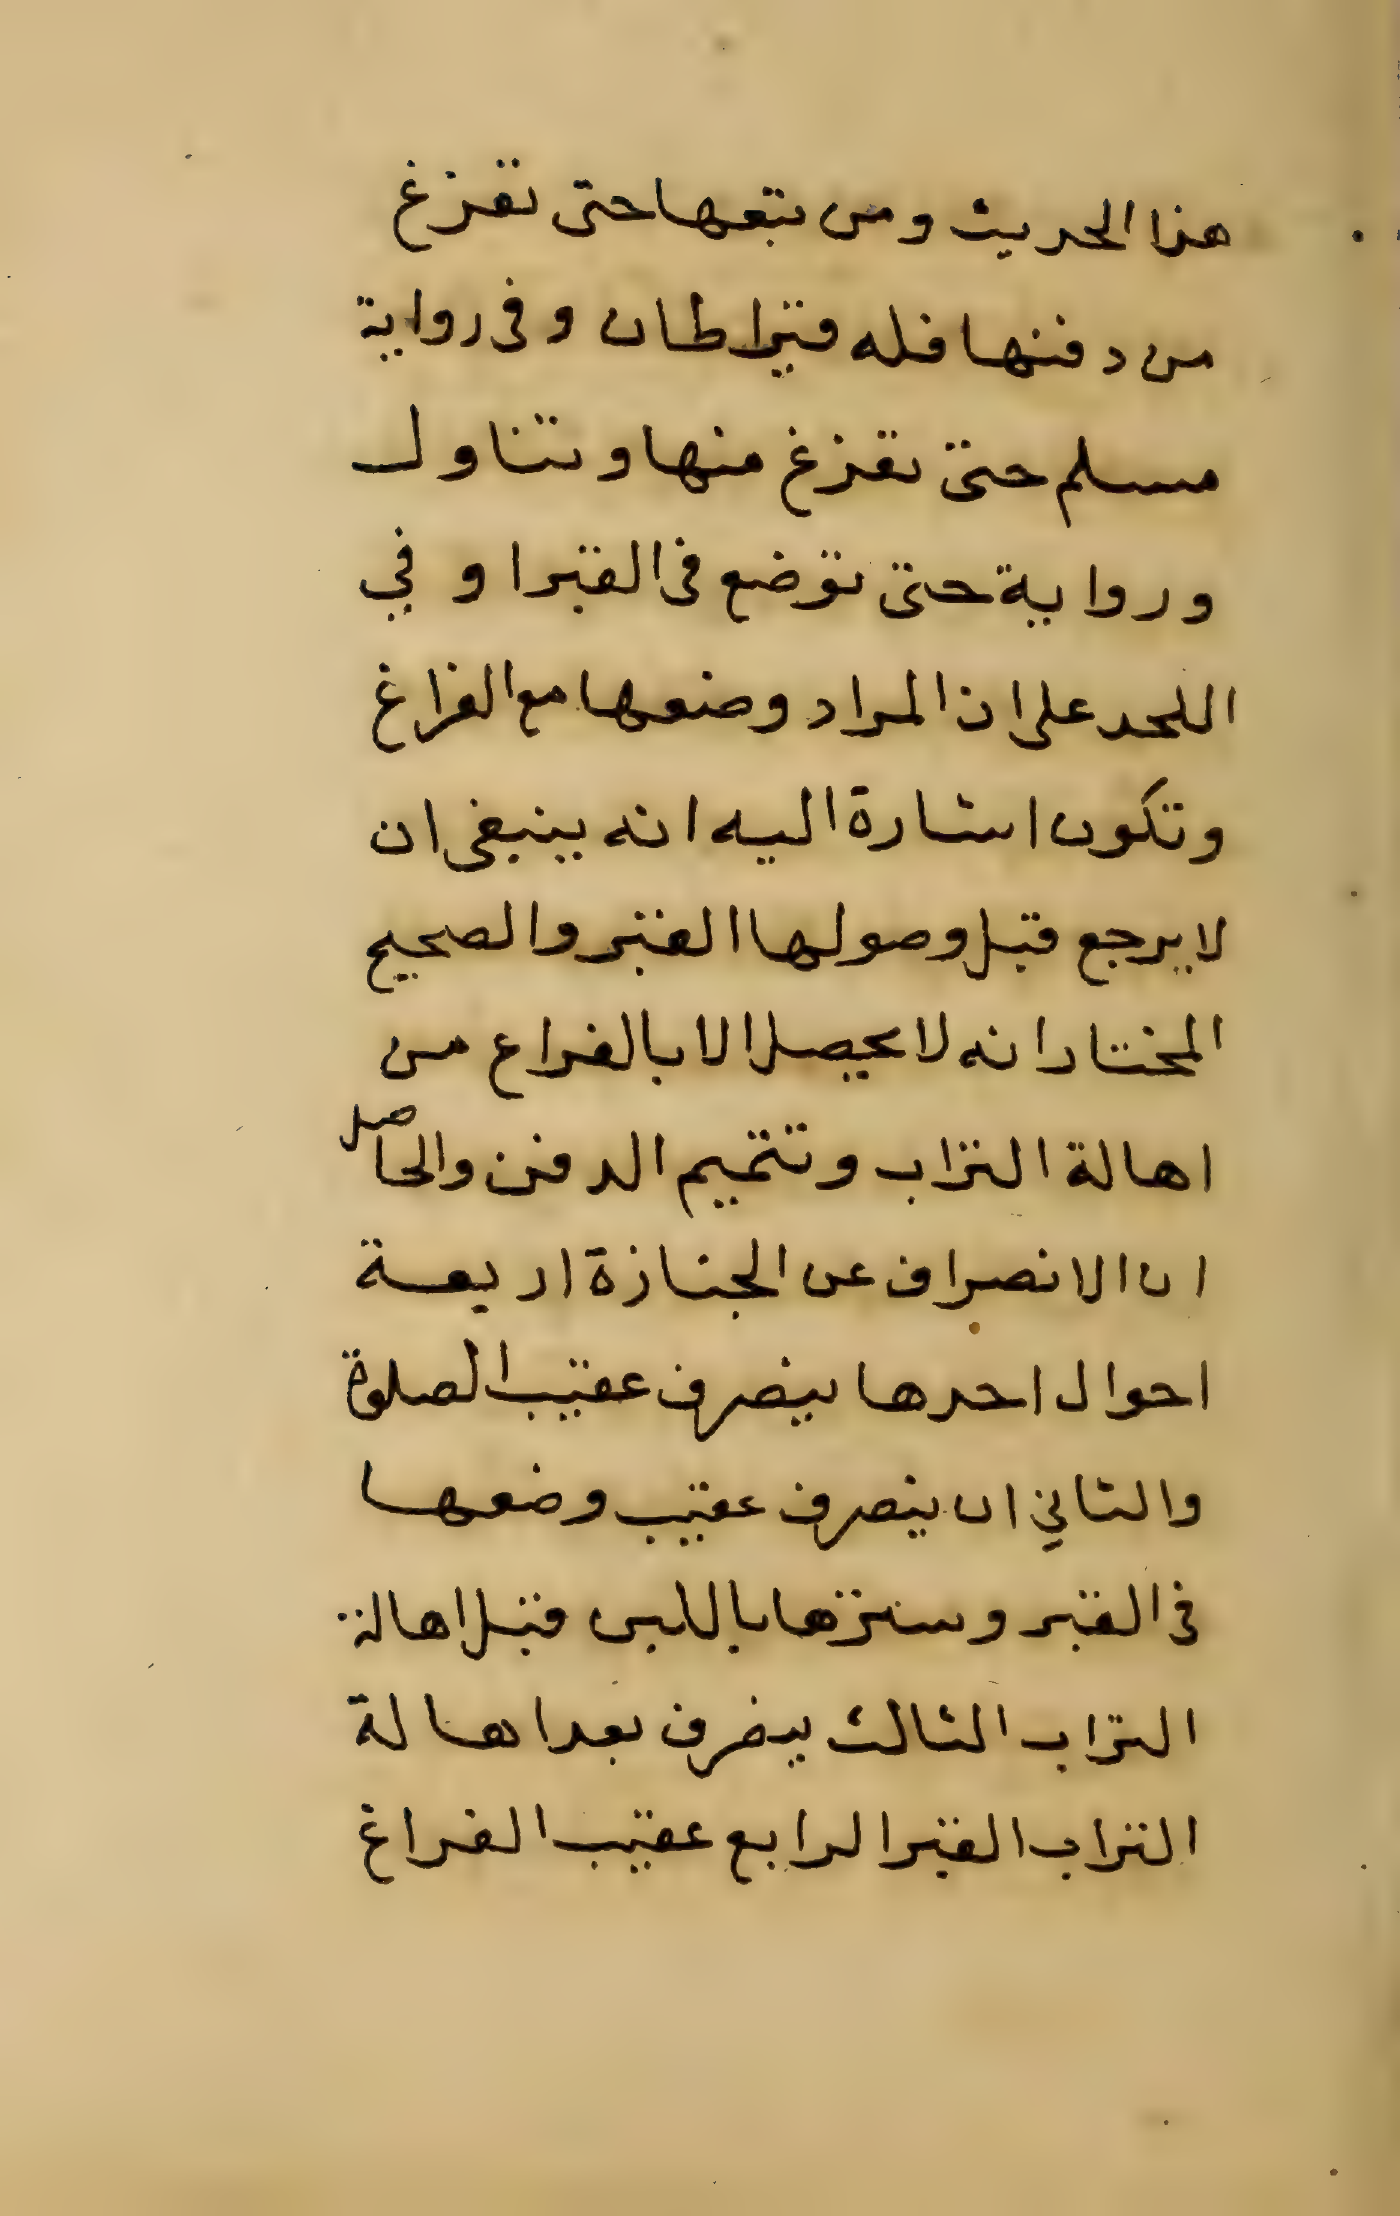 هذا الحديث ومن تبعها حتى تفرغ
من دفنها فله قيراطان وفى رواية
مسلم حتى تفرغ منها وتناول
ورواية حتى توضع فى القبر او في
اللحد على ان المراد وضعها مع الفراغ
وتكون اشارة اليه انه ينبغى ان
لا يرجع قبل وصولها القبر والصحيح
المختار انه لا يحصل الا بالفراع من
اهالة التراب وتتميم الدفن والحاصل
ان الانصراف عن الجنازة اربعة
احوال احدها ينصرف عقيب الصلوة
والثاني ان ينصرف عقيب وضعها
فى القبر وسترها باللبن قبل اهالة
التراب الثالث ينصرف بعد اهالة
التراب القبر الرابع عقيب الفراغ